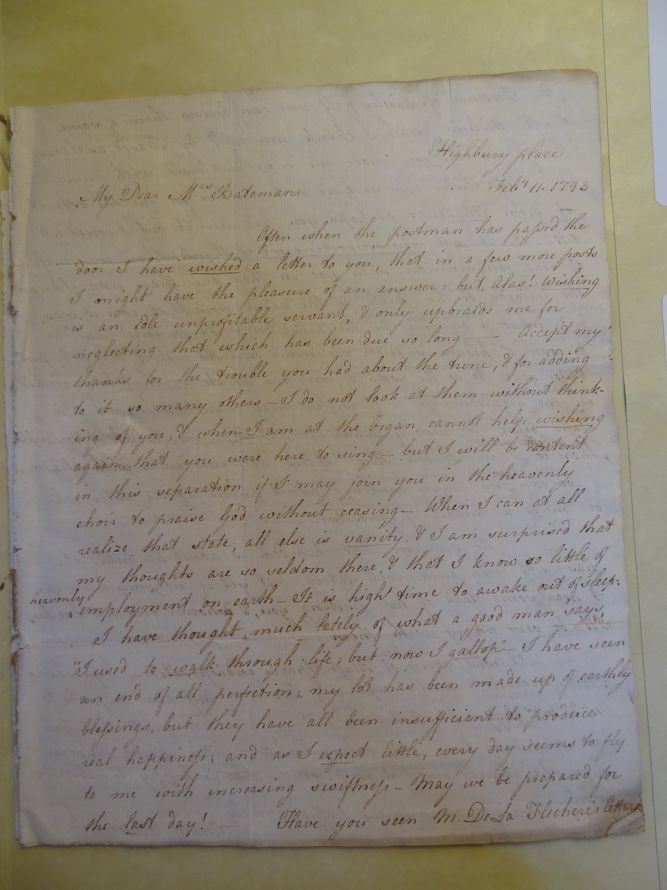 Highbury place
Feby 11. 1793
My Dear Mrs Bateman
Often when the postman has passed the
door I have wished a letter to you, that in a few more posts
I might have the pleasure of an answer: but, alas! wishing
is an idle unprofitable servant, & only upbraids me for
neglecting that which has been due so long — Accept my
thanks for the trouble you had about the tune, & for adding
to it so many others — I do not look at them without think-
ing of you, & when I am at the began, cannot help wishing
again that you were here to sing — but I will be content
in this separation if I may join you in the heavenly
choir to praise God without ceasing — When I can at all
realize that state, all else is vanity, & I am surprised that
my thoughts are so seldom there, & that I know so little of
heavenly employment on earth — It is high time to awake out of sleep:
I have thought much lately of what a good man says,
"I used to walk through life, but now I gallop" — I have seen
an end of all perfection; my lot has been made up of earthly
blessings, but they have all been insufficient to produce
real happiness; and as I expect little, every day seems to fly
to me with increasing swiftness — May we be prepared for
the last day! — Have you seen M. De La Flechere's letters